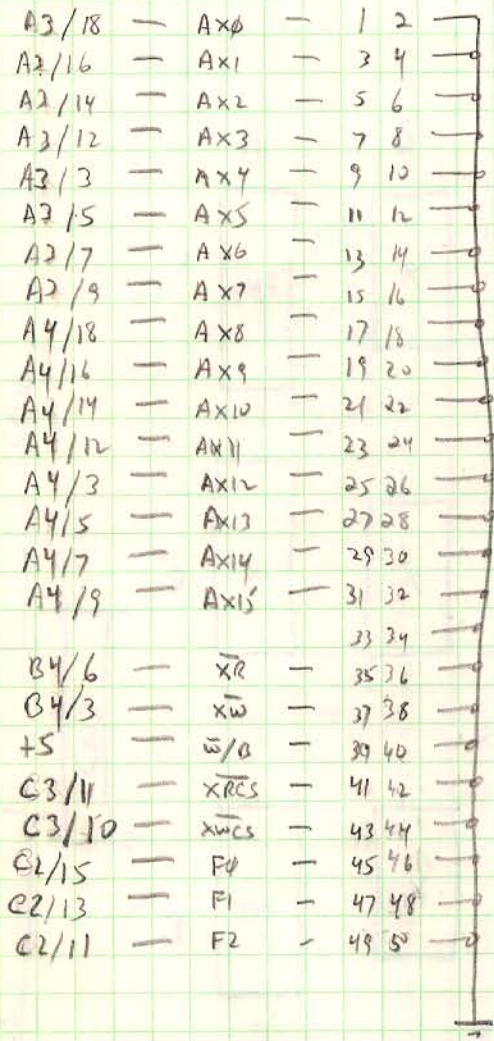 A3/18 — AXφ — 1 2
A3/16 — AX1 — 3 4
A3/14 — AX2 — 5 6
A3/12 — AX3 — 7 8
A3/3 — AX4 — 9 10
A3/5 — AX5 — 11 12
A3/7 — AX6 — 13 14
A3/9 — AX7 — 15 16
A4/18 — AX8 — 17 18
A4/16 — AX9 — 19 20
A4/14 — AX10 — 21 22
A4/12 — AX11 — 23 24
A4/3 — AX12 — 25 26
A4/5 — AX13 — 27 28
A4/7 — AX14 — 29 30
A4/9 — AX15 — 31 32
33 34
B4/6 — X̅R̅ — 35 36
B4/3 — X̅W̅ — 37 38
+5 — W̅/B — 39 40
C3/11 — X̅R̅C̅S̅ — 41 42
C3/10 — X̅W̅C̅S̅ — 43 44
C2/15 — Fφ — 45 46
C2/13 — F1 — 47 48
C2/11 — F2 - 49 50